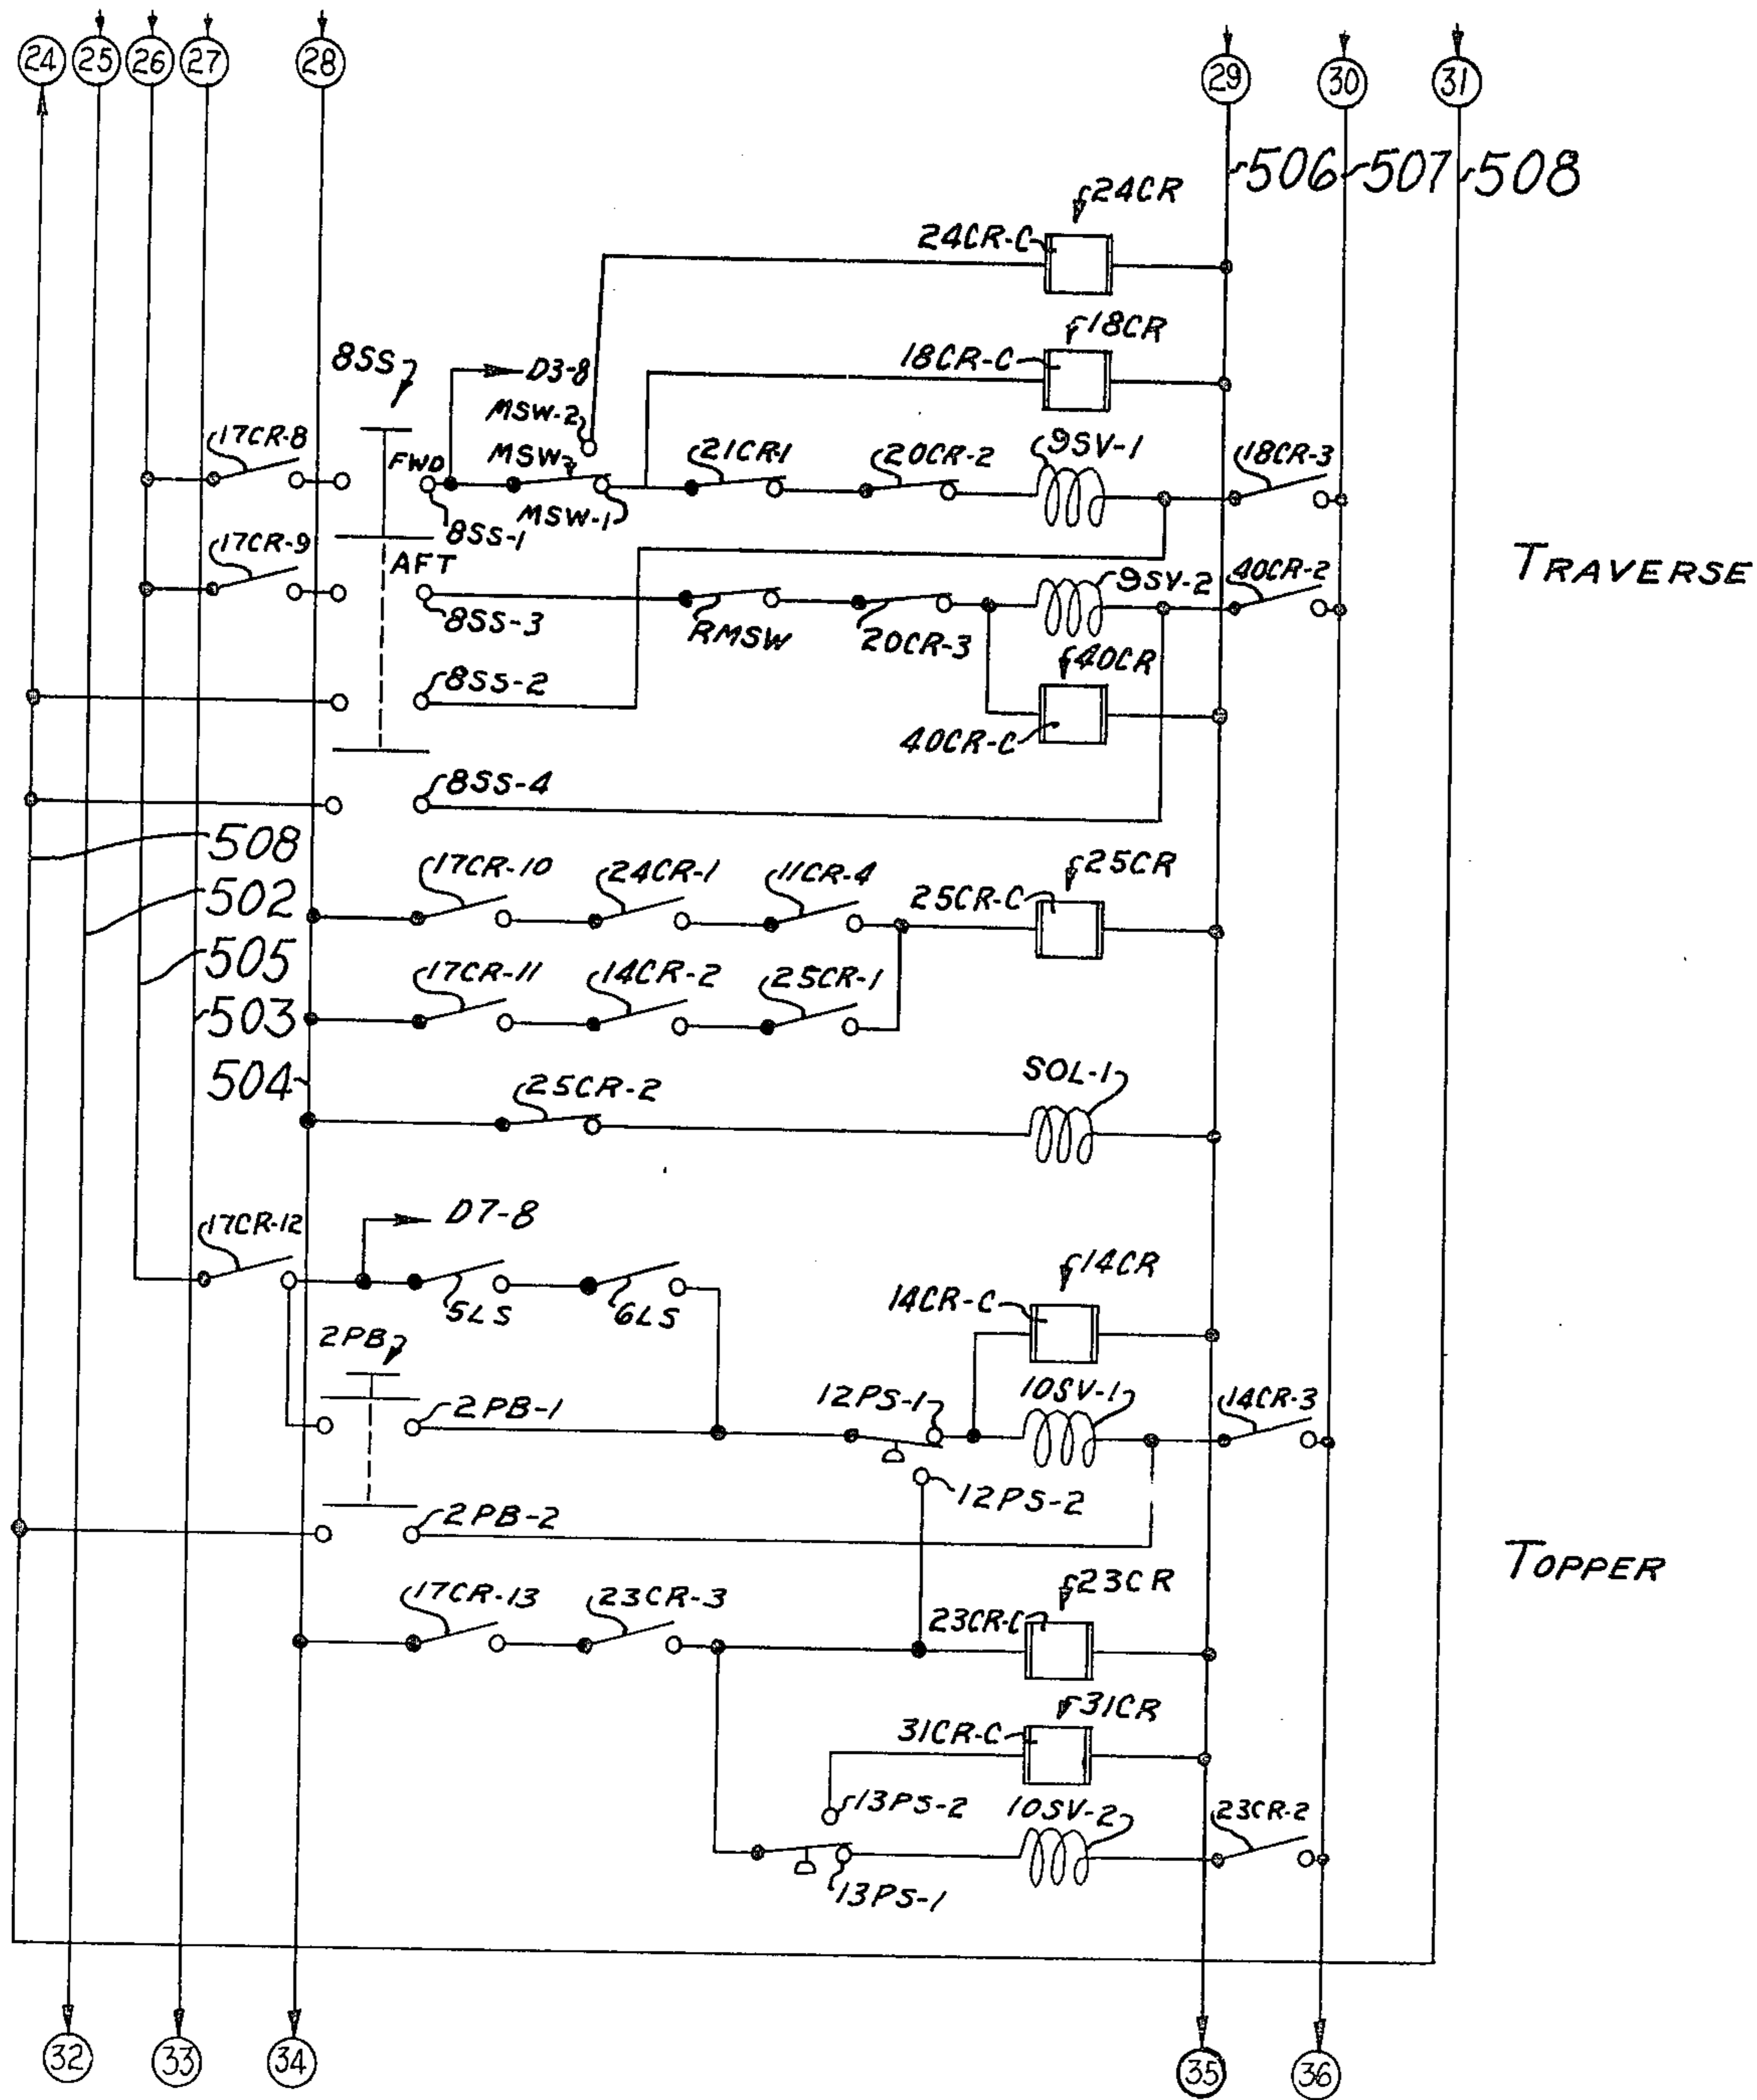 24 25 26 27 28 29 30 31
506 507 508
24CR
24CR-C
18CR
18CR-C
8SS
D3-8
MSW-2
17CR-8
FWD
MSW
21CR-1
20CR-2
9SV-1
18CR-3
MSW-1
8SS-1
17CR-9
AFT
9SV-2
40CR-2
TRAVERSE
8SS-3
RMSW
20CR-3
40CR
8SS-2
40CR-C
8SS-4
508
17CR-10
24CR-1
11CR-4
25CR-C
25CR
502
505
17CR-11
14CR-2
25CR-1
503
504
25CR-2
SOL-1
17CR-12
D7-8
14CR
5LS
6LS
14CR-C
2PB
2PB-1
12PS-1
10SV-1
14CR-3
12PS-2
2PB-2
TOPPER
17CR-13
23CR-3
23CR
23CR-C
31CR
31CR-C
13PS-2
10SV-2
23CR-2
13PS-1
32 33 34 35 36